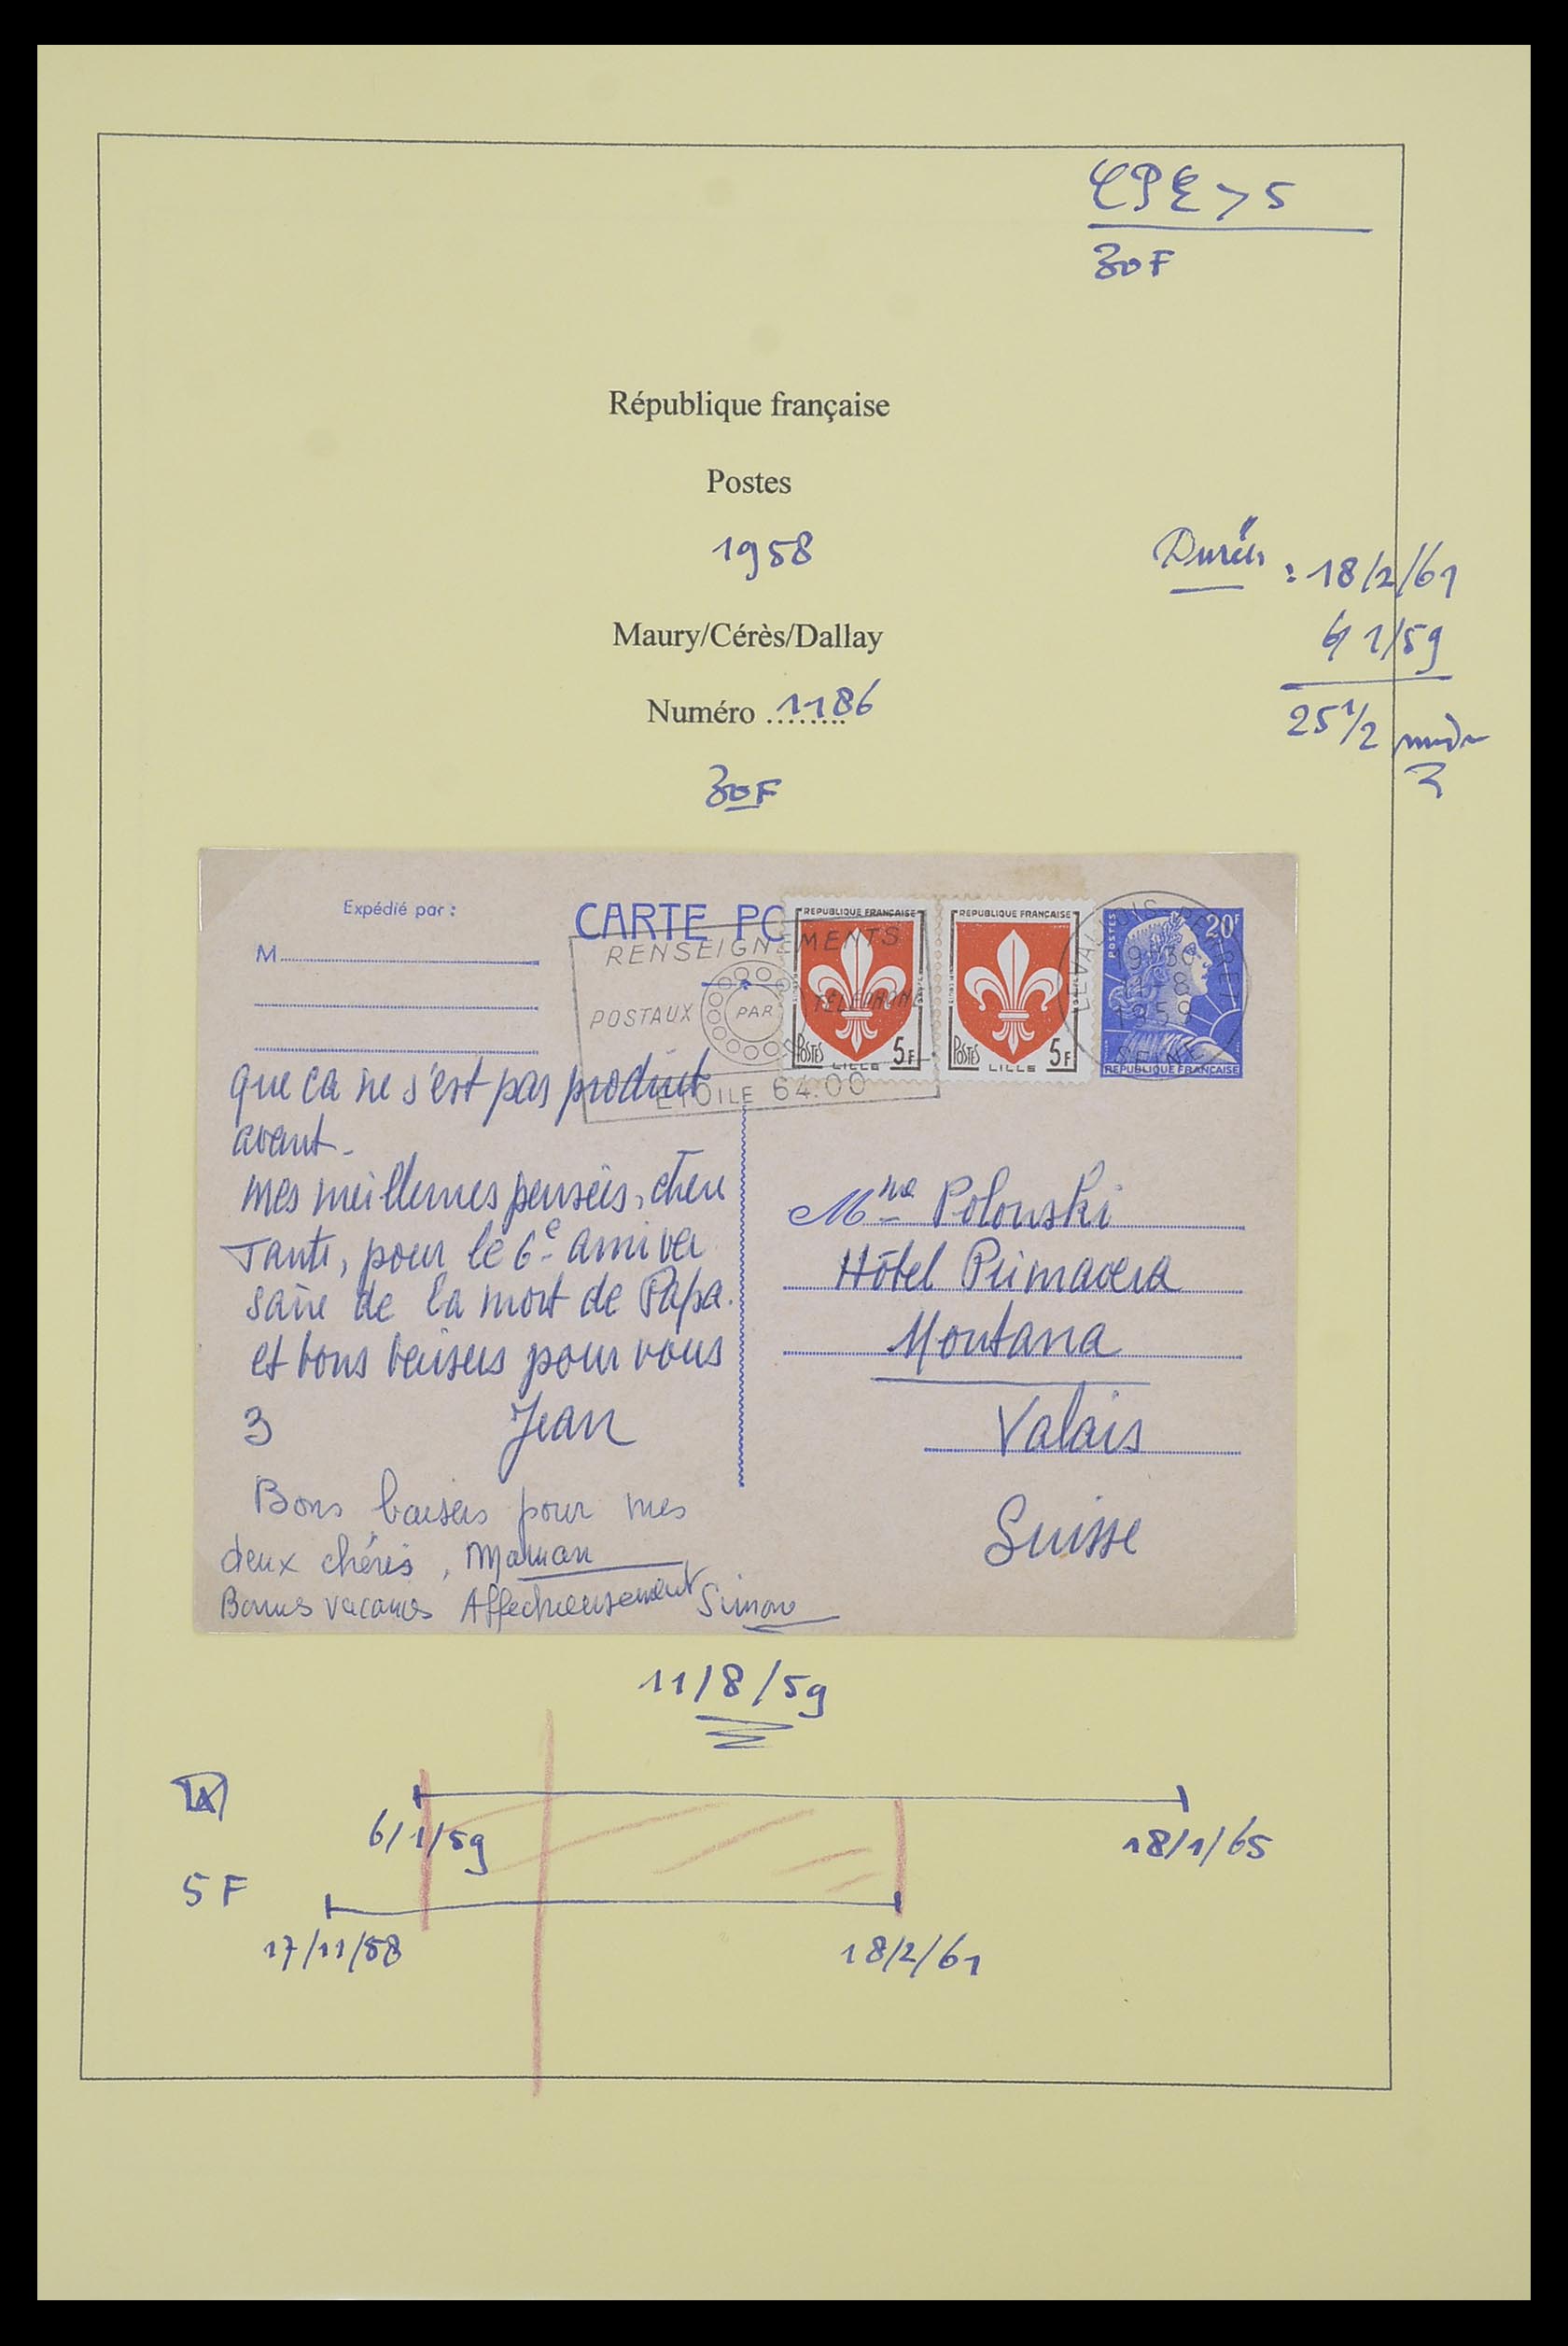 CPE > 5
30F
République française
Postes
1958
Maury/Cérès/Dallay
Numéro ........ 1186
30F
Durée : 18/2/61
6/1/59
25 1/2
Expédié par :
M
CARTE PO
RENSEIGNEMENTS
POSTAUX PAR TÉLÉPHONE
ETOILE 64.00
REPUBLIQUE FRANÇAISE
POSTES 5F
LILLE
REPUBLIQUE FRANÇAISE
POSTES 5F
LILLE
POSTES 20F
REPUBLIQUE FRANÇAISE
LEVALLOIS-PERRET
9H30
11-8
1959
SEINE
que ca ne s'est pas produit
avant.
Mes meilleures pensées, chère
Tante, pour le 6e anniver
saire de la mort de Papa.
et bons baisers pour vous
3 Jean
Bons baisers pour mes
deux chéris, Maman
Bonnes vacances Affectueusement Simone
Mme Polonski
Hôtel Primavera
Montana
Valais
Suisse
11/8/59
6/1/59
18/1/65
5F
17/11/58
18/2/61